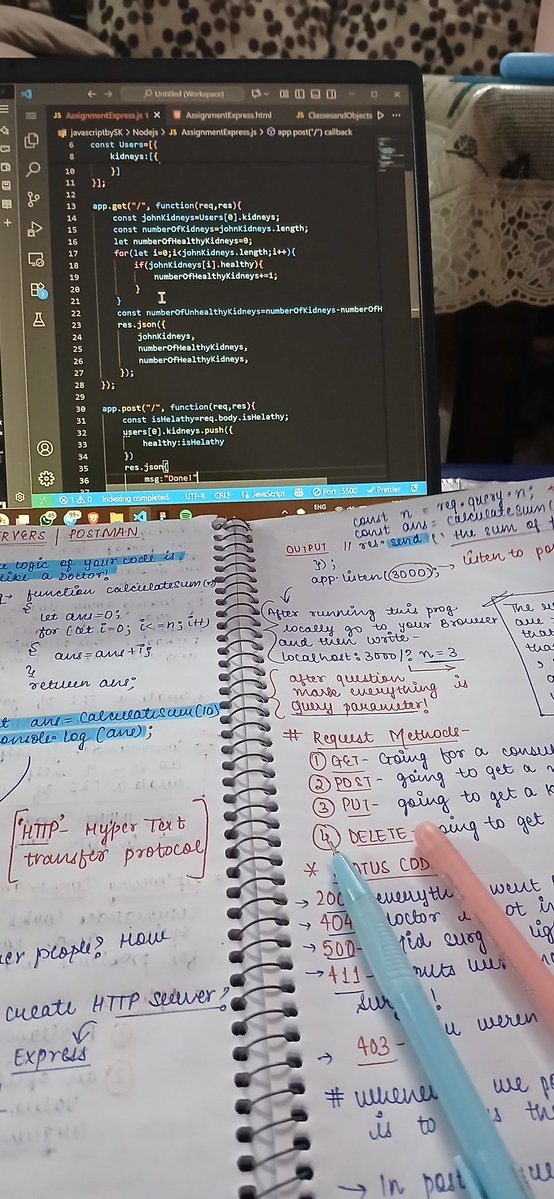 Untitled (Workspace)
JS AssignmentExpress.js 1 × AssignmentExpress.html JS ClassesandObjects
javascriptbySK > Nodejs > JS AssignmentExpress.js > app.post("/") callback
6 const Users=[{
8 kidneys:[{
10 }]
11 }];
12
13 app.get("/", function(req,res){
14 const johnKidneys=Users[0].kidneys;
15 const numberOfKidneys=johnKidneys.length;
16 let numberOfHealthyKidneys=0;
17 for(let i=0;i<johnKidneys.length;i++){
18 if(johnKidneys[i].healthy){
19 numberOfHealthyKidneys+=1;
20 }
21 }
22 const numberOfUnhealthyKidneys=numberOfKidneys-numberOfH
23 res.json({
24 johnKidneys,
25 numberOfHealthyKidneys,
26 numberOfHealthyKidneys,
27 });
28 });
29
30 app.post("/", function(req,res){
31 const isHelathy=req.body.isHelathy;
32 users[0].kidneys.push({
33 healthy:isHelathy
34 })
35 res.json{
36 msg:"Done!"
1 0 Indexing completed. UTF-8 CRLF JavaScript Port : 5500 Prettier
ENG
ERVERS | POSTMAN
logic of your code is
like a Doctor!
function calculateSum(n)
{
let ans=0;
for (let i=0; i<=n; i++)
{ ans=ans+i;
}
return ans;
ans = calculateSum(10)
console.log (ans);
['HTTP'- Hyper Text
transfer protocol]
her people? How
create HTTP server?
Express
const n = req.query.n;
const ans = calculateSum(
res.send (! the sum of
OUTPUT //
});
app.listen(3000); → listen to po
(After running this prog.
locally go to your Browser
and then write-
localhost:3000/? n=3
after question
mark everything is
query parameter!
# Request Methods-
① GET- Going for a consu
② POST- going to get a
③ PUT- going to get a
④ DELETE- going to get
* STATUS COD
→ 200 everything went
→ 404 Doctor
→ 500-
→ 411-
→ 403-
weren
# whenever we po
is to
→ In post